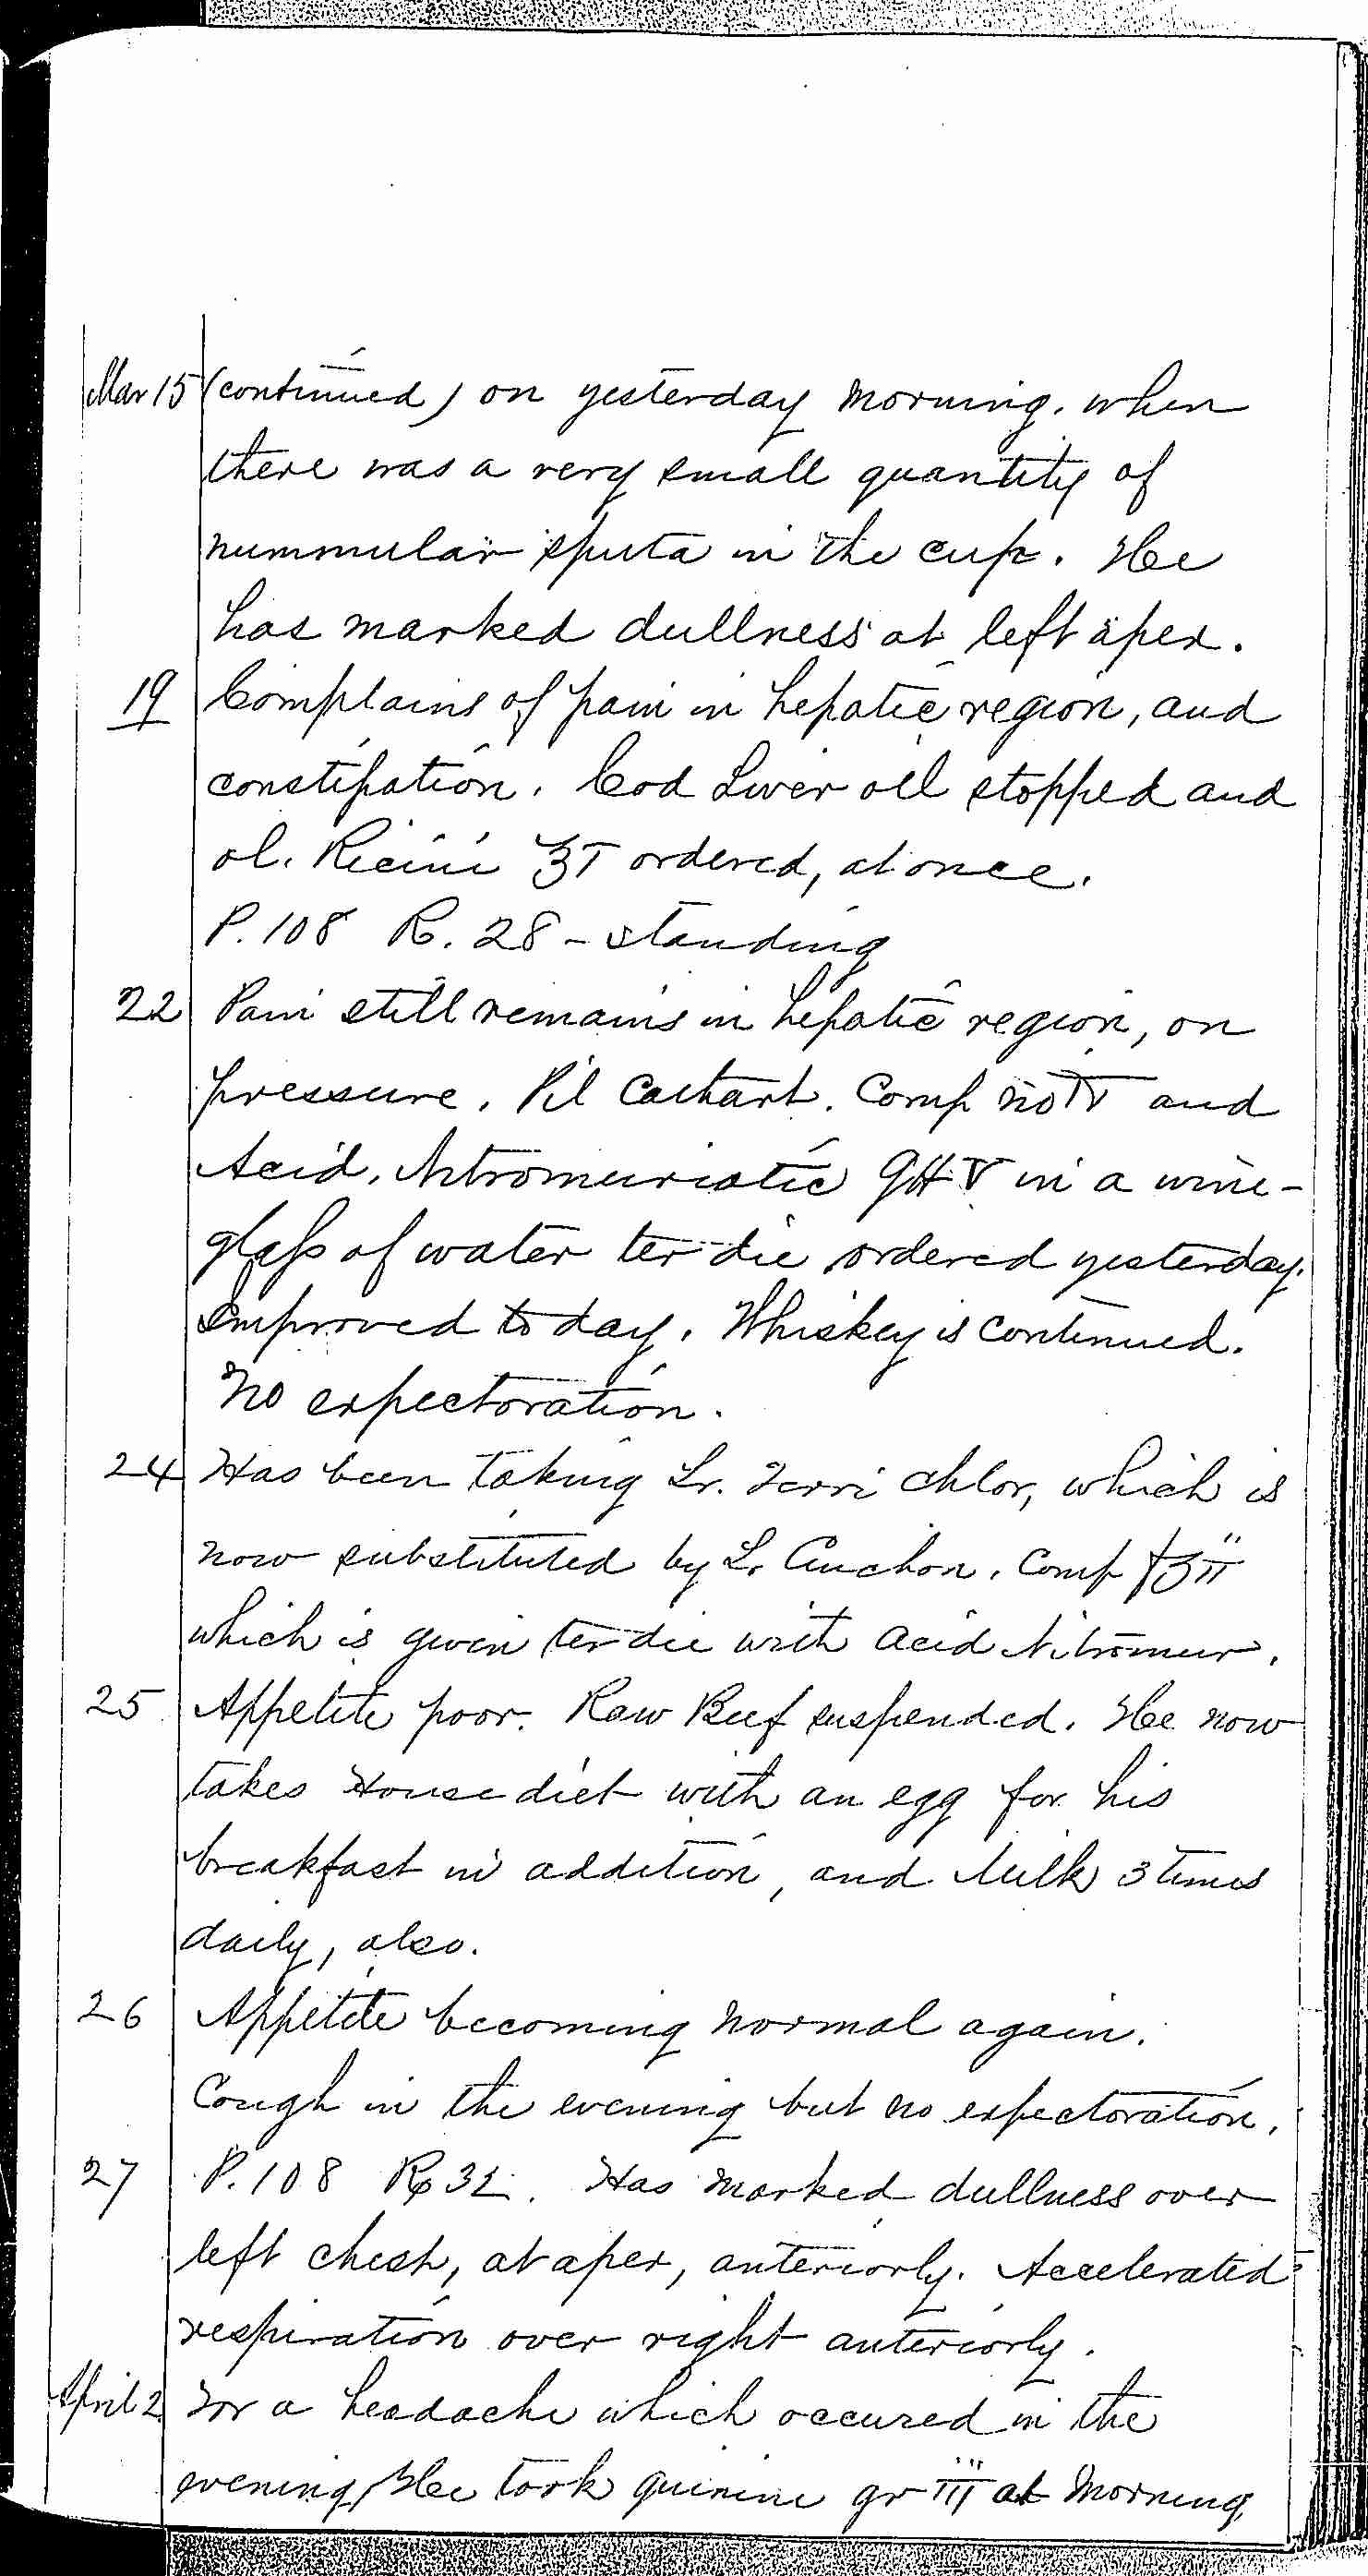 Mar 15 (continued) on yesterday morning, when
there was a very small quantity of
nummular sputa in the cup. He
has marked dullness at left apex.
19 Complains of pain in hepatic region, and
constipation. Cod Liver oil stopped and
ol. Ricini ℥T ordered, at once.
P. 108 R. 28 - standing
22 Pain still remains in hepatic region, on
pressure. Pil Cathart. Comp no and
Acid. Nitromuriatic gtt V in a wine-
glass of water ter die ordered yesterday.
Improved to day. Whiskey is continued.
No expectoration.
24 Has been taking Tr. Ferri chlor, which is
now substituted by Tr Cinchon. Comp fʒii
which is given ter die with acid Nitromur.
25 Appetite poor. Raw Beef suspended. He now
takes House diet with an egg for his
breakfast in addition, and Milk 3 times
daily, also.
26 Appetite becoming normal again.
Cough in the evening but no expectoration.
27 P. 108 Rp 32. Has marked dullness over
left chest, at apex, anteriorly. Accelerated
respiration over right anteriorly.
April 2 For a headache which occured in the
evening, He took quinine gr iii at Morning,